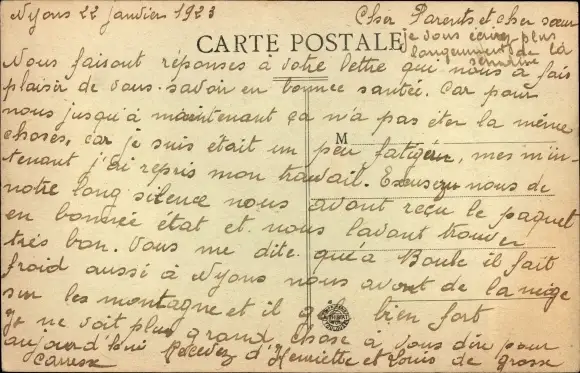 Nyons 22 janvier 1923
Cher Parents et cher sœur
CARTE POSTALE
je vous écirez plus
longuement de la
semaine
Nous faisont réponses à votre lettre qui nous à fais
plaisir de vous savoir en bonnee santée. Car pour
nous jusqu'à maintenant ça n'a pas éter la même
M
choses, car je suis était un peu fatiguér, mes m'in-
tenant j'ai repris mon travail. Excusez nous de
notre long silence nous avont reçu le paquet
en bonnée état et nous lavont trouver
trés bon. Vous me dite qué à Boule il fait
froid aussi à Nyons nous avont de la neige
sur les montagne et il gèle bien fort
Je ne voit plus grand chose à vous dire pour
aujourd'hui Recevez d'Henriette et Louis de grosse
Caresse